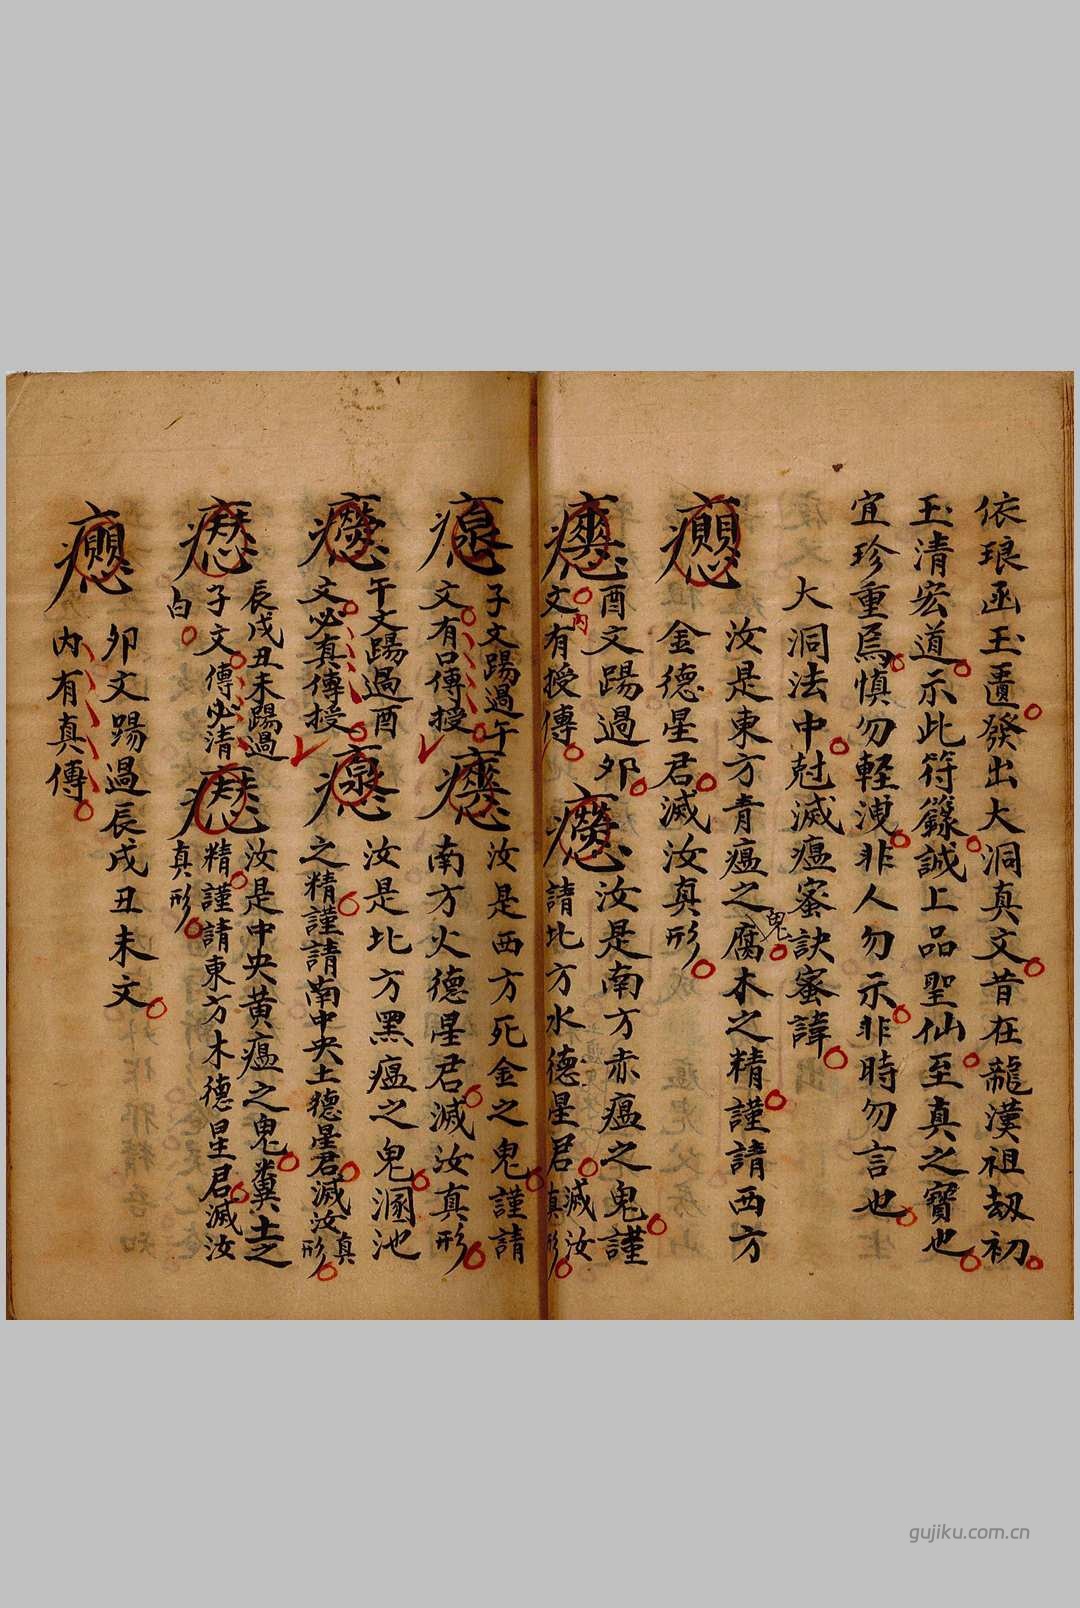 依琅函玉匱發出大洞真文昔在龍漢祖劫初
玉清宏道示此符籙誠上品聖仙至真之寶也
宜珍重焉慎勿輕洩非人勿示非時勿言也
大洞法中尅滅瘟蜜訣蜜諱
汝是東方青瘟之鬼腐木之精謹請西方
金德星君滅汝真形
酉文踢過卯
文内有授傳
汝是南方赤瘟之鬼謹
請北方水德星君滅汝
真形
子文踢過午
文有口傳授
汝是西方死金之鬼謹請
南方火德星君滅汝真形
午文踢過酉
文必真傳授
汝是北方黑瘟之鬼溷池
之精謹請南中央土德星君滅汝真
形
辰戌丑未踢過
子文傳必清
白
汝是中央黄瘟之鬼糞土之
精謹請東方木德星君滅汝
真形
卯文踢過辰戌丑未文
内有真傳
gujiku.com.cn